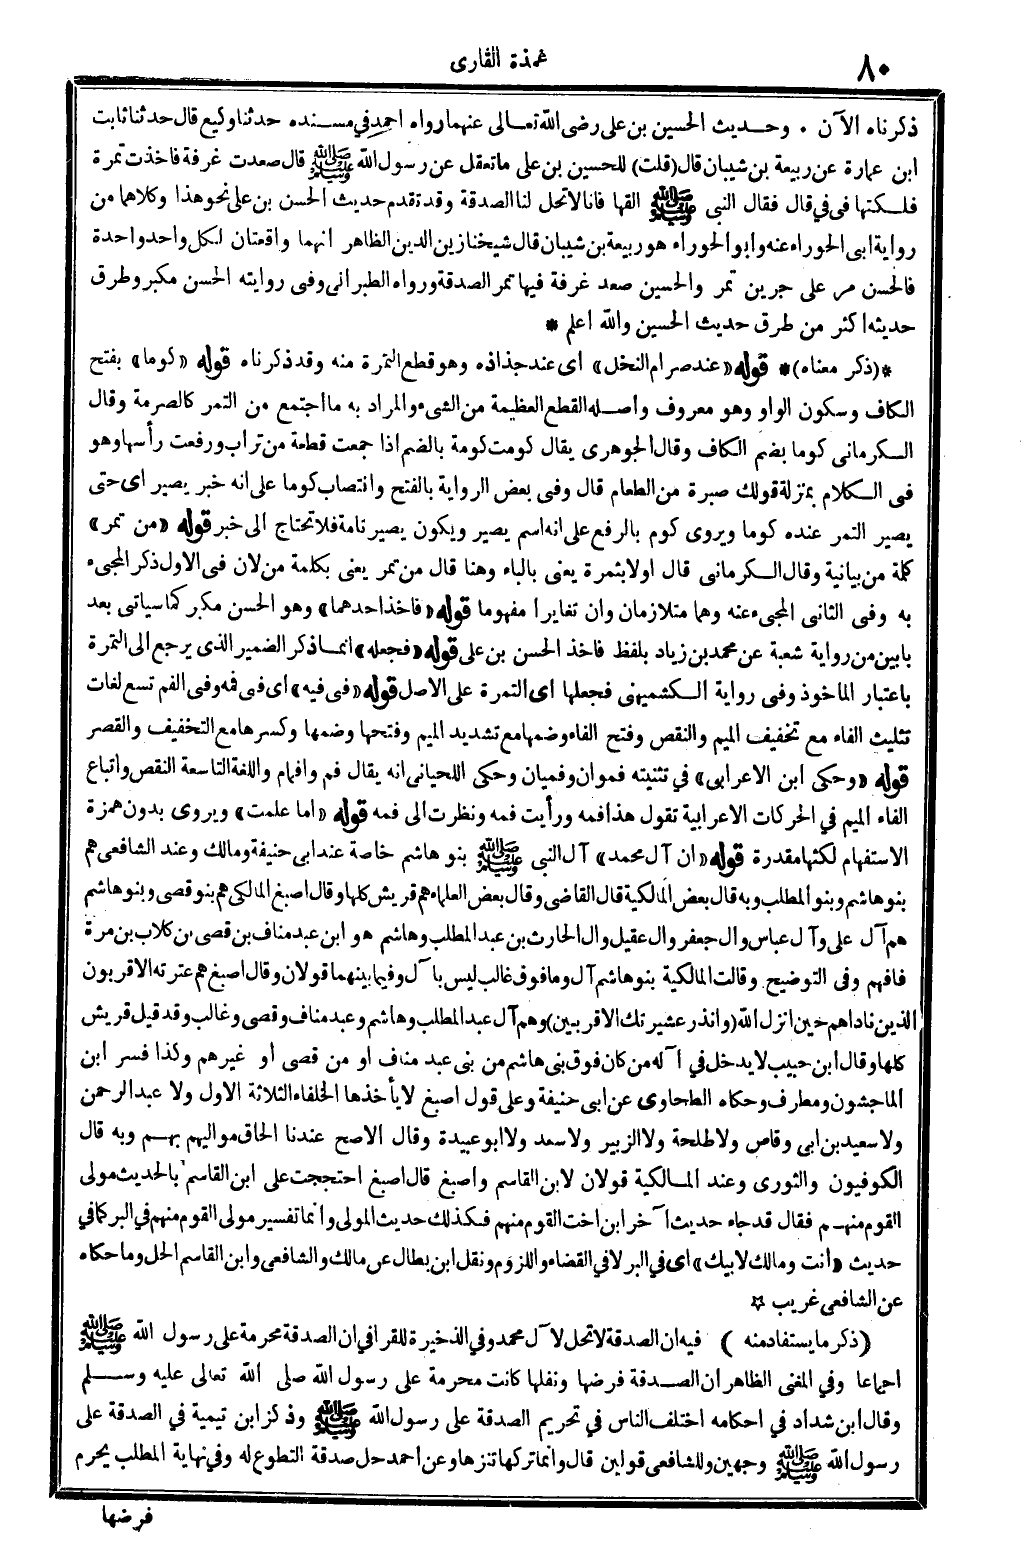 ٨٠
عمدة القارى
ذكرناه الآن . وحديث الحسين بن على رضى الله تعالى عنهما رواه احمد في مسنده حدثنا وكيع قال حدثنا ثابت
ابن عمارة عن ربيعة بن شيبان قال (قلت) للحسين بن على ما تعقل عن رسول الله ﷺ قال صعدت غرفة فاخذت تمرة
فلكتها فى في قال فقال النبى ﷺ القها فانا لا تحل لنا الصدقة وقد تقدم حديث الحسن بن على نحو هذا وكلاهما من
رواية ابى الحوراء عنه وابو الحوراء هو ربيعة بن شيبان قال شيخنا زين الدين الظاهر انهما واقعتان لكل واحد واحدة
فالحسن مر على جرين تمر والحسين صعد غرفة فيها تمر الصدقة ورواه الطبرانى وفى روايته الحسن مكبر وطرق
حديثه اكثر من طرق حديث الحسين والله اعلم *
*(ذكر معناه)* قوله «عند صرام النخل» اى عند جذاذه وهو قطع التمرة منه وقد ذكرناه قوله «كوما» بفتح
الكاف وسكون الواو وهو معروف واصله القطع العظيمة من الشىء والمراد به ما اجتمع من التمر كالصرمة وقال
الكرمانى كوما بضم الكاف وقال الجوهرى يقال كومت كومة بالضم اذا جمعت قطعة من تراب ورفعت رأسها وهو
فى الكلام بمنزلة قولك صبرة من الطعام قال وفى بعض الرواية بالفتح وانتصاب كوما على انه خبر يصير اى حتى
يصير التمر عنده كوما ويروى كوم بالرفع على انه اسم يصير ويكون يصير تامة فلا تحتاج الى خبر قوله «من تمر»
كلمة من بيانية وقال الكرمانى قال اولا بتمرة يعنى بالباء وهنا قال من تمر يعنى بكلمة من لان فى الاول ذكر المجىء
به وفى الثانى المجىء عنه وهما متلازمان وان تغايرا مفهوما قوله «فاخذ احدهما» وهو الحسن مكبر كما سياتى بعد
بابين من رواية شعبة عن محمد بن زياد بلفظ فاخذ الحسن بن على قوله «فجعله» انما ذكر الضمير الذى يرجع الى التمرة
باعتبار الماخوذ وفى رواية الكشميهنى فجعلها اى التمرة على الاصل قوله «فى فيه» اى فى فمه وفى الفم تسع لغات
تثليث الفاء مع تخفيف الميم والنقص وفتح الفاء وضمها مع تشديد الميم وفتحها وضمها وكسرها مع التخفيف والقصر
قوله «وحكى ابن الاعرابى» في تثنيته فموان وفميان وحكى اللحيانى انه يقال فم وافمام واللغة التاسعة النقص واتباع
الفاء الميم في الحركات الاعرابية تقول هذا فمه ورأيت فمه ونظرت الى فمه قوله «اما علمت» ويروى بدون همزة
الاستفهام لكنها مقدرة قوله «ان آل محمد» آل النبى ﷺ بنو هاشم خاصة عند ابى حنيفة ومالك وعند الشافعى هم
بنو هاشم وبنو المطلب وبه قال بعض المالكية قال القاضى وقال بعض العلماء هم قريش كلها وقال اصبغ المالكى هم بنو قصى وبنو هاشم
هم آل على وآل عباس وال جعفر وال عقيل وال الحارث بن عبد المطلب وهاشم هو ابن عبد مناف بن قصى بن كلاب بن مرة
فافهم وفى التوضيح وقالت المالكية بنو هاشم آل وما فوق غالب ليس بآل وفيما بينهما قولان وقال اصبغ هم عترته الاقربون
الذين ناداهم حين انزل الله (وانذر عشيرتك الاقربين) وهم آل عبد المطلب وهاشم وعبد مناف وقصى وغالب وقد قيل قريش
كلها وقال ابن حبيب لا يدخل في آله من كان فوق بنى هاشم من بنى عبد مناف او من قصى أو غيرهم وكذا فسر ابن
الماجشون ومطرف وحكاه الطحاوى عن ابى حنيفة وعلى قول اصبغ لا يأخذها الخلفاء الثلاثة الاول ولا عبد الرحمن
ولا سعيد بن ابى وقاص ولا طلحة ولا الزبير ولا سعد ولا ابو عبيدة وقال الاصح عندنا الحاق مواليهم بهم وبه قال
الكوفيون والثورى وعند المالكية قولان لابن القاسم واصبغ قال اصبغ احتججت على ابن القاسم بالحديث مولى
القوم منهم فقال قد جاء حديث آخر ابن اخت القوم منهم فكذلك حديث المولى وانما تفسير مولى القوم منهم في البر كما في
حديث «أنت ومالك لابيك» اى في البر لا في القضاء واللزوم ونقل ابن بطال عن مالك والشافعى وابن القاسم الحل وما حكاه
عن الشافعى غريب ☆
(ذكر ما يستفاد منه) فيه ان الصدقة لا تحل لآل محمد وفي الذخيرة للقرافي ان الصدقة محرمة على رسول الله ﷺ
اجماعا وفي المغنى الظاهر أن الصدقة فرضها ونفلها كانت محرمة على رسول الله صلى الله تعالى عليه وسلم
وقال ابن شداد في احكامه اختلف الناس في تحريم الصدقة على رسول الله ﷺ وذكر ابن تيمية في الصدقة على
رسول الله ﷺ وجهين وللشافعى قولين قال وانما تركها تنزها وعن احمد حل صدقة التطوع له وفي نهاية المطلب يحرم
فرضها